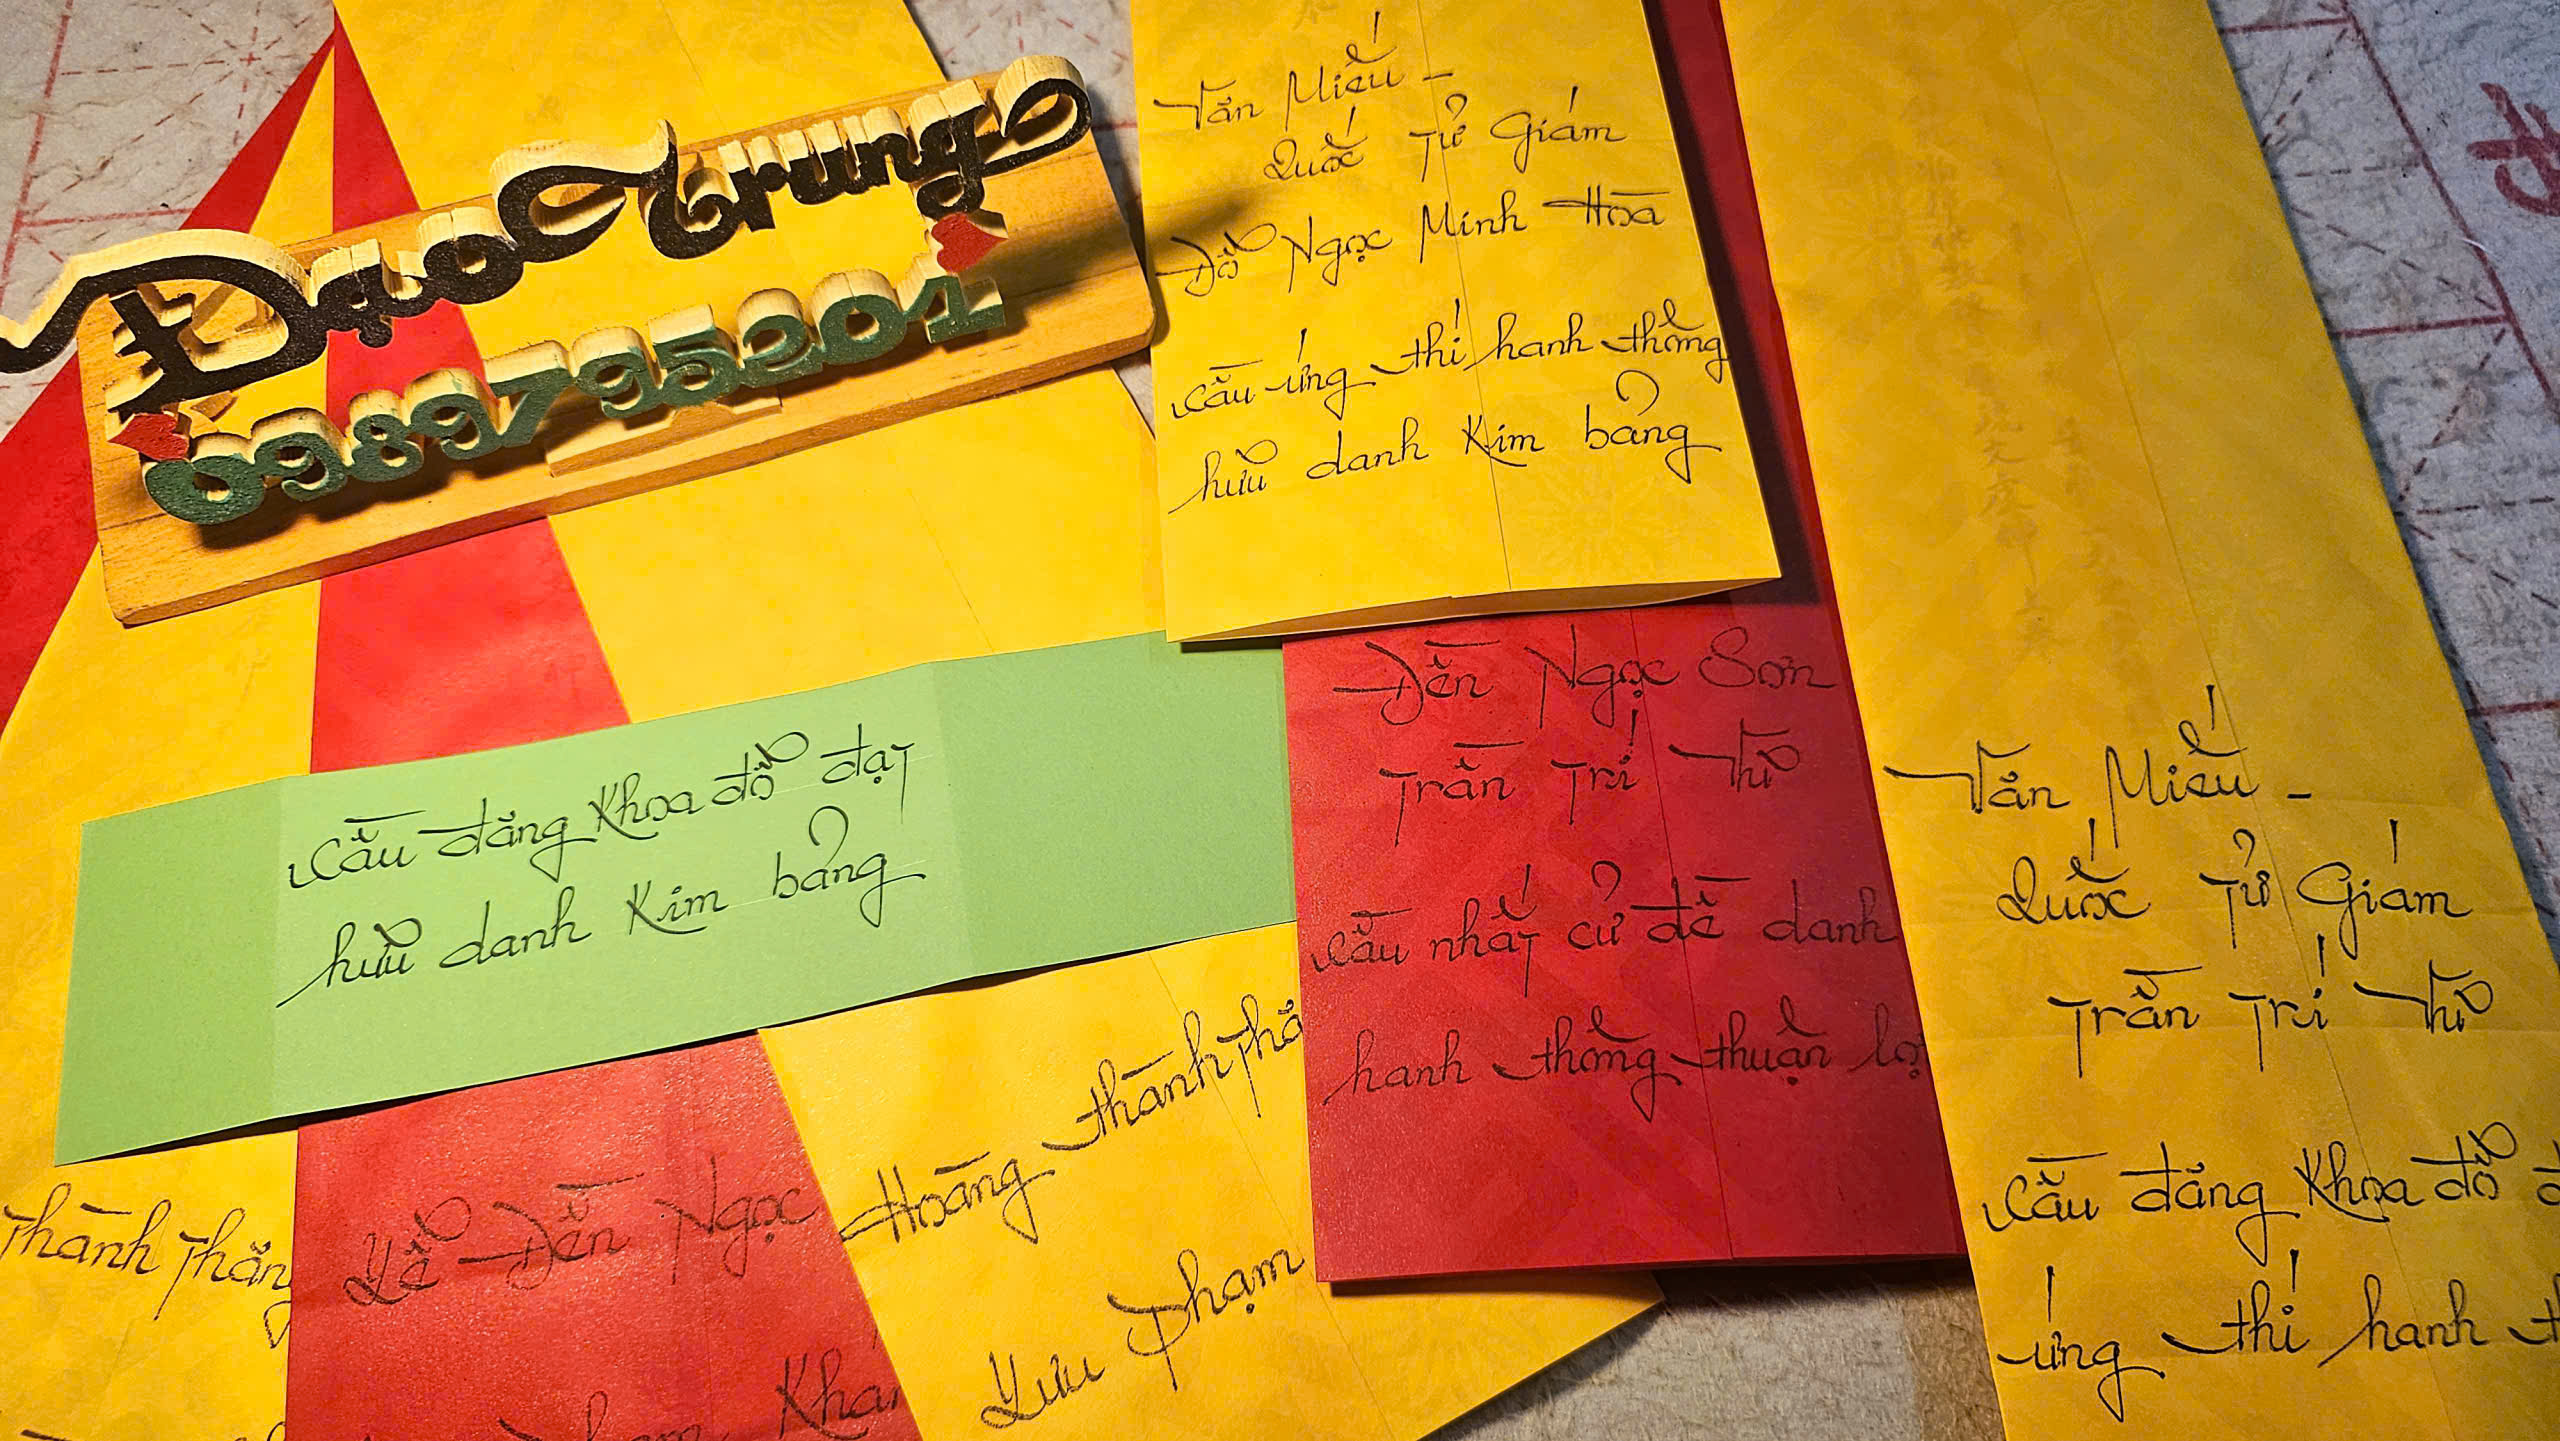 Đạo Trung
0989795201
Văn Miếu -
Quốc Tử Giám
Đỗ Ngọc Minh Hòa
Cầu ứng thí hanh thông
hữu danh Kim bảng
Cầu đăng khoa đỗ đạt
hữu danh Kim bảng
Đền Ngọc Sơn
Trần Trí Vĩ
Cầu nhất cử đề danh
hanh thông thuận lợi
Văn Miếu -
Quốc Tử Giám
Trần Trí Vĩ
Cầu đăng khoa đỗ
ứng thí hanh
Thành Thăng
Lễ Đền Ngọc
Hoàng thành Thă
Lưu Phạm